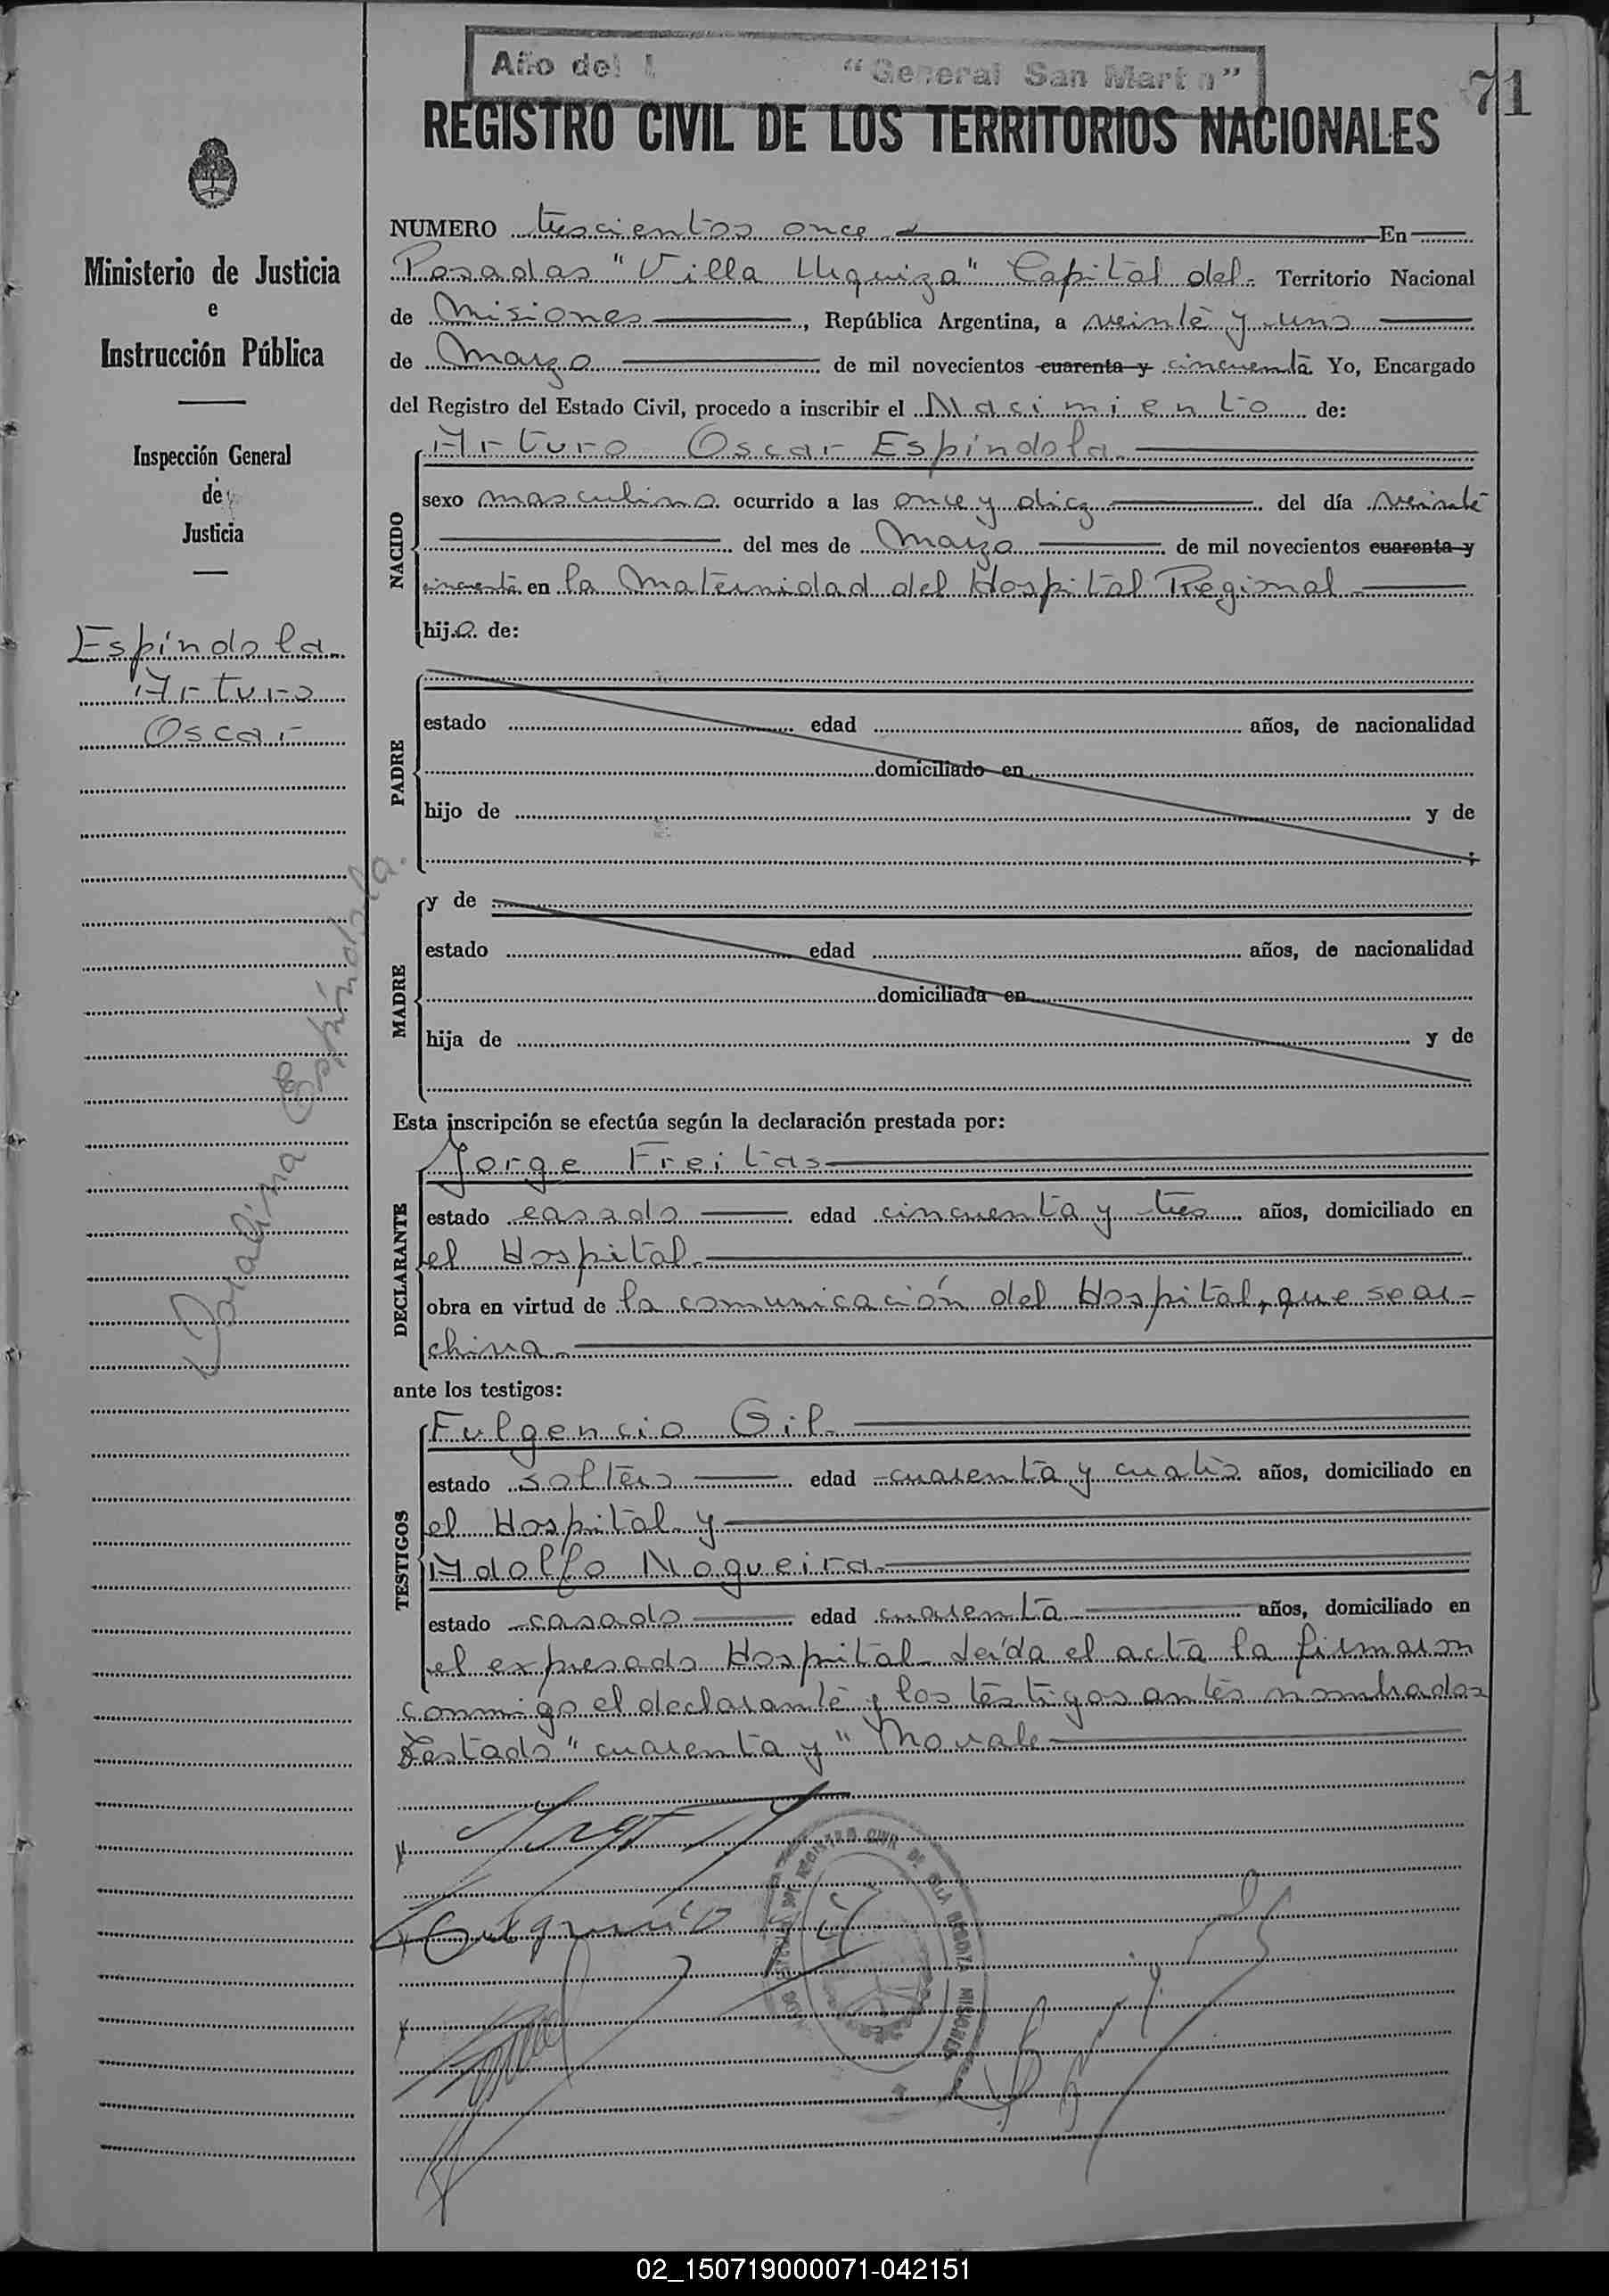 Año del L "General San Martín"
71
REGISTRO CIVIL DE LOS TERRITORIOS NACIONALES
Ministerio de Justicia
e
Instrucción Pública
Inspección General
de
Justicia
Espíndola
Arturo
Oscar
Espíndola.
NUMERO trescientos once En
Posadas "Villa Urquiza" Capital del Territorio Nacional
de Misiones, República Argentina, a veinte y uno
de Marzo de mil novecientos cuarenta y cincuenta Yo, Encargado
del Registro del Estado Civil, procedo a inscribir el Nacimiento de:
Arturo Oscar Espíndola.
NACIDO
sexo masculino ocurrido a las once y diez del día veinte
del mes de Marzo de mil novecientos cuarenta y
cincuenta en la Maternidad del Hospital Regional
hijo de:
PADRE
estado edad años, de nacionalidad
domiciliado en
hijo de y de
;
MADRE
y de
estado edad años, de nacionalidad
domiciliada en
hija de y de
Esta inscripción se efectúa según la declaración prestada por:
DECLARANTE
Jorge Freitas
estado casado edad cincuenta y tres años, domiciliado en
el Hospital.
obra en virtud de la comunicación del Hospital, que se ar-
chiva.
ante los testigos:
TESTIGOS
Fulgencio Gil
estado soltero edad cuarenta y cuatro años, domiciliado en
el Hospital y
Adolfo Nogueira
estado casado edad cuarenta años, domiciliado en
el expresado Hospital. Leída el acta la firmaron
conmigo el declarante y los testigos antes nombrados
Testado "cuarenta y" No vale
Fulgencio Gil
REGISTRO CIVIL DE VILLA URQUIZA MISIONES
02_150719000071-042151